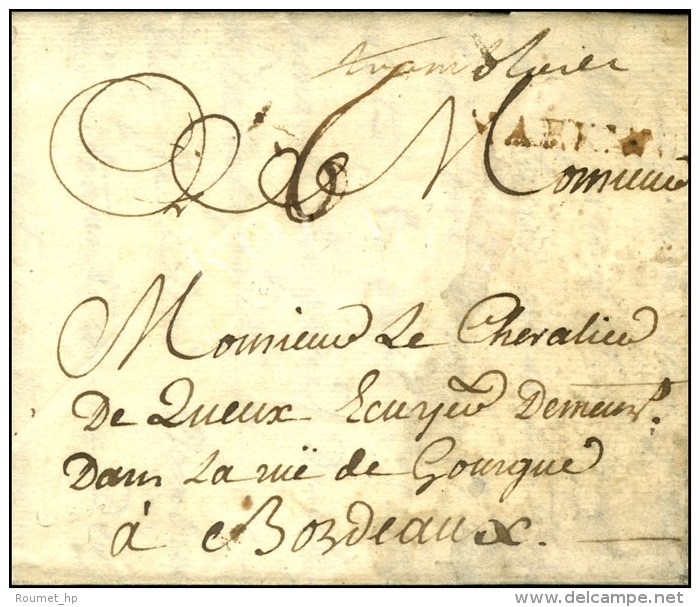 Monsieur
Monsieur Le Chevalier
De Queux Ecuyer Demeur.
Dans La rüe de Gourgue
à Bordeaux.
Roumet_hp
delcampe.net